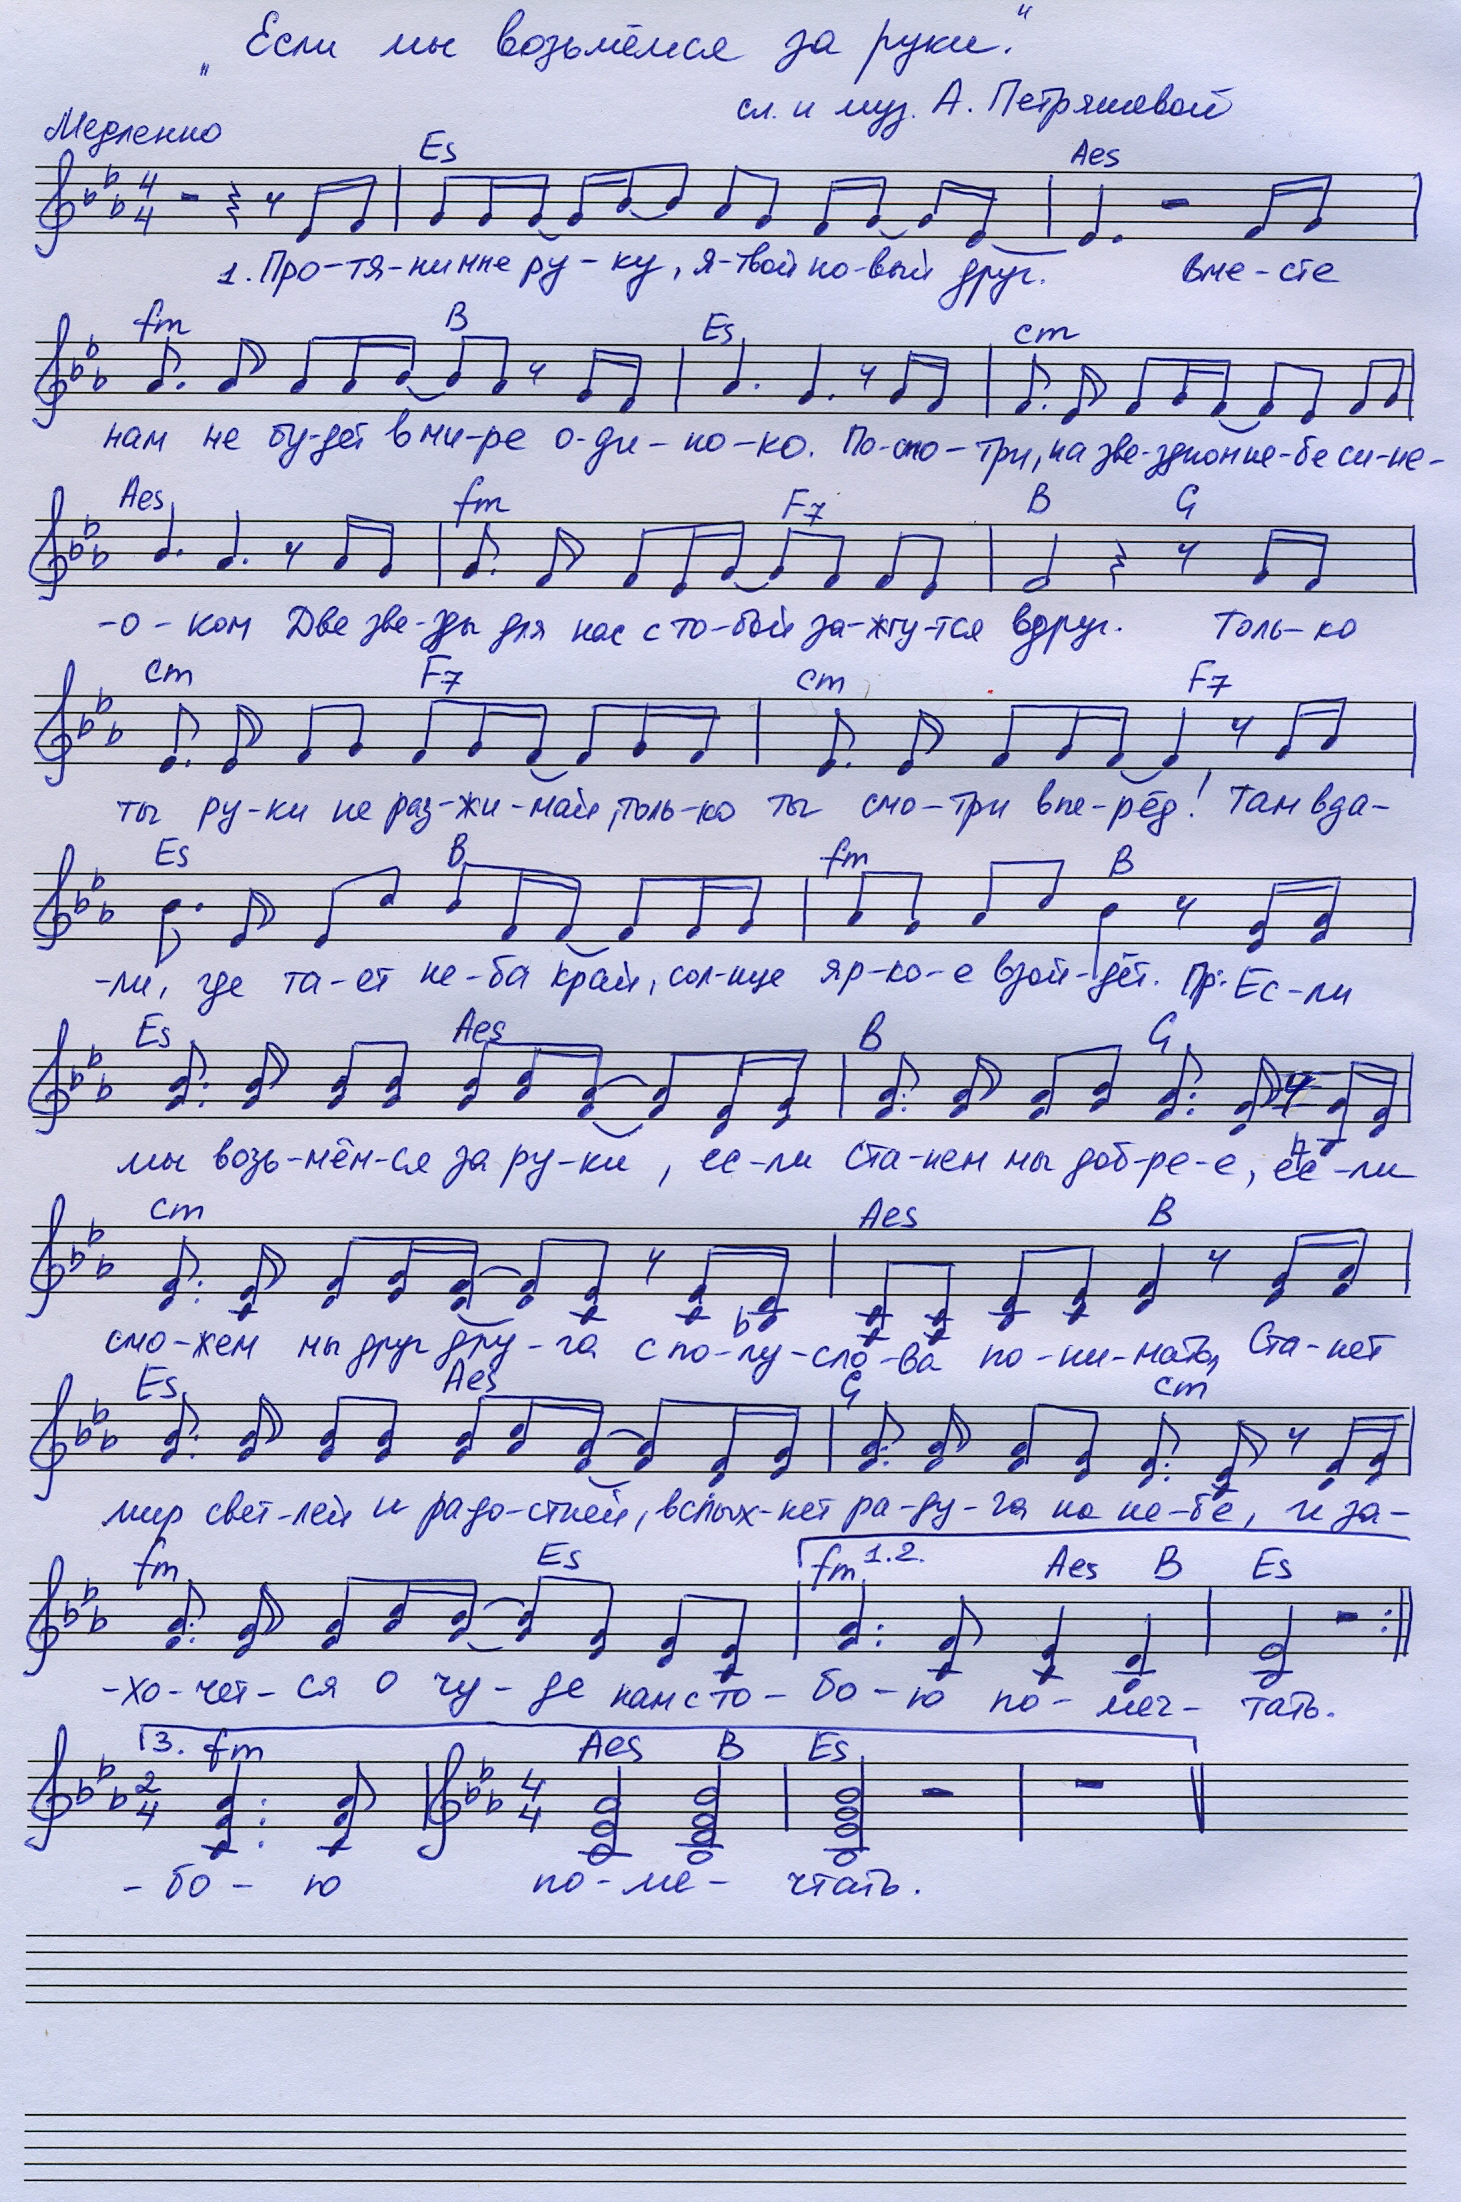 „Если мы возьмёмся за руки."
сл. и муз. А. Петряшевой
Медленно
Es Aes
4 4
1. Про-тя-ни мне ру-ку, я-твой но-вый друг. Вме-сте
fm B Es cm
нам не бу-дет в ми-ре о-ди-но-ко. По-смо-три, на звё-здном не-бе си-не-
Aes fm F7 B G
-о-ком Две зве-зды для нас с то-бой за-жгу-тся вдруг. Толь-ко
cm F7 cm F7
ты ру-ки не раз-жи-май, толь-ко ты смо-три впе-рёд! Там вда-
Es B fm B
-ли, где та-ет не-ба край, сол-нце яр-ко-е взой-дёт. Пр: Ес-ли
Es Aes B G
мы возь-мём-ся за ру-ки, ес-ли ста-нем мы доб-ре-е, ес-ли
cm Aes B
смо-жем мы друг дру-га с по-лу-сло-ва по-ни-мать, Ста-нет
Es Aes G cm
мир свет-лей и ра-до-стней, вспых-нет ра-ду-га на не-бе, и за-
fm Es fm 1.2. Aes B Es
-хо-чет-ся о чу-де нам с то-бо-ю по-меч-тать.
3. fm Aes B Es
2 4 4 4
-бо-ю по-ме-чтать.